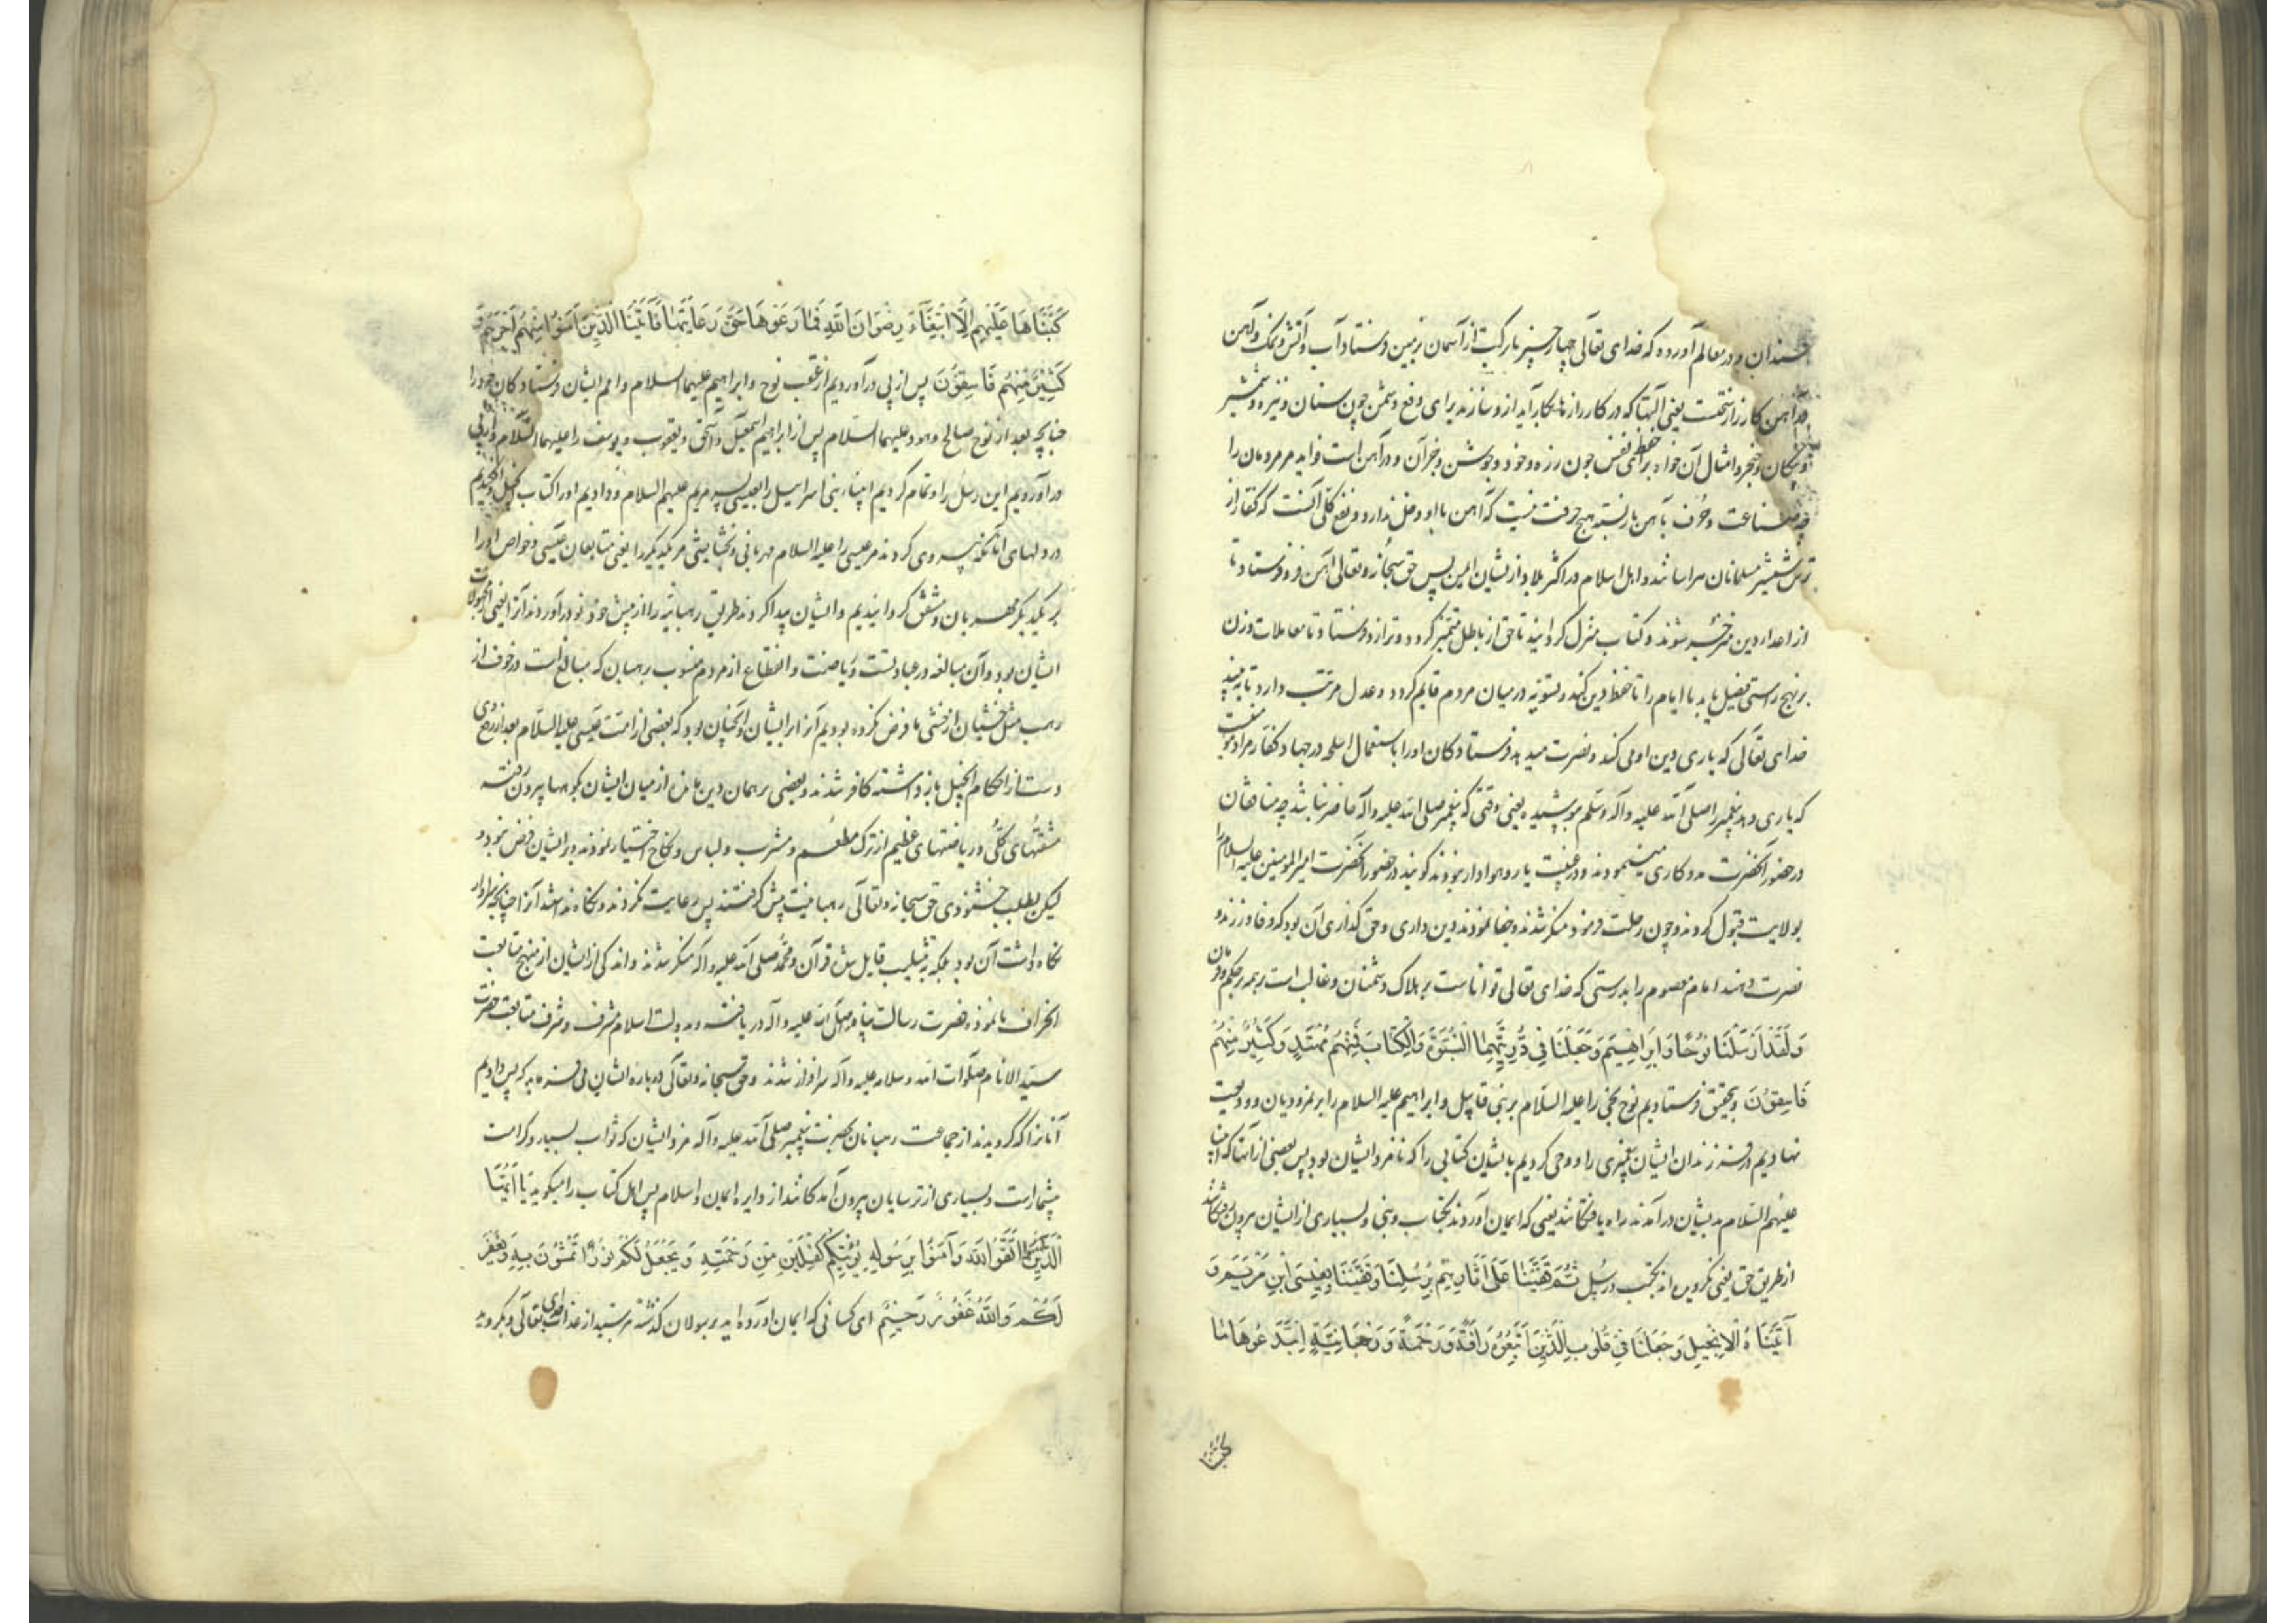 سندان و در معالم آورده که خدای تعالی چهار چیز بابرکت از آسمان بزمین فرستاد آب و آتش و نمک و آهن
در آهن کارزار سختست یعنی آلتها که در کارزارها بکار آید ازو سازند برای دفع دشمن چون سنان و نیزه و شمشیر
و پیکان و خنجر و امثال آن خواه برای حفظ نفس چون زره و خود و جوشن و غیر آن و در آهن است فواید مر مردمان را
چه صناعت و حرف بآهن باز بسته هیچ حرفت نیست که آهن با او دخل ندارد و نفع کلی آنست که کفار از
ترس شمشیر مسلمانان هراسانند و اهل اسلام در اکثر بلاد از ایشان ایمن پس حق سبحانه و تعالی آهن فرو فرستاد تا
از اعداء دین شوند و کتاب منزل گردانید تا حق از باطل متمیز گردد و ترازو فرستاد تا معاملات وزن
بر نهج راستی فیصل یابد با ایام را تا حفظ دین کند و تسویه در میان مردم قایم گردد و عدل مرتب دارد تا به بیند
خدای تعالی که یاری دین او می کند و نصرت میدهد فرستادکان او را باستعمال اسلحه در جهاد کفار مراد
که یاری دهد پیغمبر را صلی الله علیه وآله وسلم پوشیده یعنی وقتی که پیغمبر صلی الله علیه وآله حاضر نباشد چه منافقان
در حضور آنحضرت مددکاری مینمودند و در غیبت یار و هوادار نبودند گویند در حضور آنحضرت امیر المومنین علیه السلام را
بولایت قبول کردند و چون رحلت فرمود منکر شدند و جفا نمودند دین داری و حق گذاری آن بود که وفا ورزند و
نصرت دهند امام معصوم را بدرستی که خدای تعالی تواناست بر هلاک دشمنان و غالب است بر همه بر حکم و فرمان
وَلَقَدْ أَرْسَلْنَا نُوحًا وَإِبْرَاهِيمَ وَجَعَلْنَا فِي ذُرِّيَّتِهِمَا النُّبُوَّةَ وَالْكِتَابَ فَمِنْهُمْ مُهْتَدٍ وَكَثِيرٌ مِنْهُمْ
فَاسِقُونَ و بتحقیق فرستادیم نوح نجی را علیه السلام بر بنی قابیل و ابراهیم علیه السلام را بر نمرودیان و ودیعت
نهادیم در فرزندان ایشان پیغمبری را و وحی کردیم بایشان کتابی را که نامزد ایشان بود پس بعضی از آنها که انبیا
علیهم السلام بدیشان درآمدند راه یافتکانند یعنی که ایمان آوردند بکتاب و بنی و بسیاری از ایشان بیرون رفتکانند
از طریق حق یعنی نکرویدند بکتب و رسل ثُمَّ قَفَّيْنَا عَلَى آثَارِهِمْ بِرُسُلِنَا وَقَفَّيْنَا بِعِيسَى ابْنِ مَرْيَمَ وَ
آتَيْنَاهُ الْإِنْجِيلَ وَجَعَلْنَا فِي قُلُوبِ الَّذِينَ اتَّبَعُوهُ رَأْفَةً وَرَحْمَةً وَرَهْبَانِيَّةً ابْتَدَعُوهَا مَا
كَتَبْنَاهَا عَلَيْهِمْ إِلَّا ابْتِغَاءَ رِضْوَانِ اللَّهِ فَمَا رَعَوْهَا حَقَّ رِعَايَتِهَا فَآتَيْنَا الَّذِينَ آمَنُوا مِنْهُمْ أَجْرَهُمْ وَ
كَثِيرٌ مِنْهُمْ فَاسِقُونَ پس از پی درآوردیم از عقب نوح و ابراهیم علیهما السلام و امم ایشان فرستادکان خود را
چنانچه بعد از نوح صالح و هود علیهما السلام پس از ابراهیم اسمعیل و اسحق و یعقوب و یوسف را علیهما السلام و از پی
درآوردیم این رسل را و تمام کردیم انبیاء بنی اسرائیل را بعیسی پسر مریم علیهم السلام و دادیم او را کتاب انجیل و افکندیم
در دلهای آنانکه پیروی کردند مر عیسی را علیه السلام مهربانی و بخشایشی مر یکدیگر را یعنی متابعان عیسی و خواص او را
بر یکدیگر مهربان و مشفق گردانیدیم و ایشان پیدا کردند طریق رهبانیه را از پیش خود نو درآوردند آنرا یعنی
ایشان بود و آن مبالغه در عبادتست و ریاضت و انقطاع از مردم منسوب برهبان که مبالغ است در خوف از
رهب مثل خشیان از خشی ما فرض نکرده بودیم آنرا بر ایشان و آنچنان بود که بعضی از امت عیسی علیه السلام بعد از وی
دست از احکام انجیل باز داشته کافر شدند و بعضی بر همان دین مانده از میان ایشان بکوهها بیرون رفته
مشقتهای کلی و ریاضتهای عظیم از ترک مطعم و مشرب و لباس و نکاح اختیار نمودند بر ایشان فرض نبود و
لیکن بطلب خشنودی حق سبحانه و تعالی رهبانیت پیش گرفتند پس رعایت نکردند و نکاه نداشتند آنرا چنانچه سزاوار
نکاه داشت آن بود بلکه بتثلیث قایل شده قرآن و محمد صلی الله علیه وآله منکر شدند و اندکی از ایشان از منهج متابعت
انحراف نانموده حضرت رسالت پناه صلی الله علیه وآله دریافته و بدولت اسلام مشرف و شرف متابعت حضرت
سید الانام صلوات الله وسلامه علیه وآله سرافراز شدند و حق سبحانه و تعالی درباره ایشان می فرماید که پس دادیم
آنانرا که گرویدند از جماعت رهبانان بحضرت پیغمبر صلی الله علیه وآله مزد ایشان که ثواب بسیار و کرامت
بیشمارست و بسیاری از ترسایان بیرون آمدکانند از دایره ایمان و اسلام پس اهل کتاب را میگوید يَا أَيُّهَا
الَّذِينَ آمَنُوا اتَّقُوا اللَّهَ وَآمِنُوا بِرَسُولِهِ يُؤْتِكُمْ كِفْلَيْنِ مِنْ رَحْمَتِهِ وَيَجْعَلْ لَكُمْ نُورًا تَمْشُونَ بِهِ وَيَغْفِرْ
لَكُمْ وَاللَّهُ غَفُورٌ رَحِيمٌ ای کسانی که ایمان آورده اید برسولان گذشته بترسید از عذاب خدای تعالی و بگروید